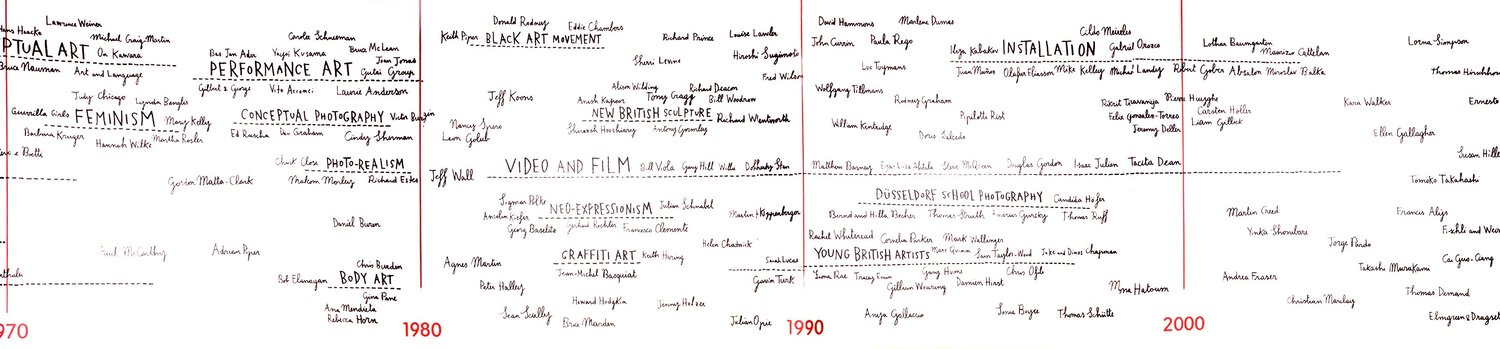 Hans Haacke
Lawrence Weiner
PTUAL ART
On Kawara
Michael Craig-Martin
Bruce Nauman
Art and Language
Judy Chicago
Lynda Benglis
Guerrilla Girls
FEMINISM
Mary Kelly
Barbara Kruger
Hannah Wilke
Martha Rosler
Paul McCarthy
1970
Carolee Schneeman
Bas Jan Ader
Yayoi Kusama
Bruce McLean
Joan Jonas
PERFORMANCE ART
Gutai Group
Gilbert & George
Vito Acconci
Laurie Anderson
CONCEPTUAL PHOTOGRAPHY
Victor Burgin
Ed Ruscha
Dan Graham
Cindy Sherman
Chuck Close
PHOTO-REALISM
Gordon Matta-Clark
Malcom Morley
Richard Estes
Daniel Buren
Adrian Piper
Chris Burden
Bob Flanagan
BODY ART
Gina Pane
Ana Mendieta
Rebecca Horn
1980
Donald Rodney
Eddie Chambers
Keith Piper
BLACK ART MOVEMENT
Richard Prince
Louise Lawler
Sherri Levine
Hiroshi Sugimoto
Fred Wilson
Jeff Koons
Alison Wilding
Richard Deacon
Anish Kapoor
Tony Cragg
Bill Woodrow
NEW BRITISH SCULPTURE
Richard Wentworth
Shirazeh Houshiary
Antony Gormley
Nancy Spero
Leon Golub
Jeff Wall
VIDEO AND FILM
Bill Viola
Gary Hill
Willie Doherty
Stan
Sigmar Polke
Julian Schnabel
Anselm Kiefer
NEO-EXPRESSIONISM
Martin Kippenberger
Georg Baselitz
Gerhard Richter
Francesco Clemente
Helen Chadwick
Agnes Martin
GRAFFITI ART
Keith Haring
Sarah Lucas
Jean-Michel Basquiat
Gavin Turk
Peter Halley
Howard Hodgkin
Jenny Holzer
Sean Scully
Brice Marden
Julian Opie
1990
David Hammons
Marlene Dumas
John Currin
Paula Rego
Cildo Meireles
Ilya Kabakov
INSTALLATION
Gabriel Orozco
Luc Tuymans
Juan Muñoz
Olafur Eliasson
Mike Kelley
Michael Landy
Robert Gober
Absalon
Miroslav Balka
Wolfgang Tillmans
Rodney Graham
Pipilotti Rist
Rirkrit Tiravanija
Pierre Huyghe
Felix Gonzalez-Torres
Carsten Höller
William Kentridge
Doris Salcedo
Jeremy Deller
Liam Gillick
Matthew Barney
Eija-Liisa Ahtila
Steve McQueen
Douglas Gordon
Isaac Julien
Tacita Dean
DÜSSELDORF SCHOOL PHOTOGRAPHY
Candida Höfer
Bernd and Hilla Becher
Thomas Struth
Andreas Gursky
Thomas Ruff
Rachel Whiteread
Cornelia Parker
Mark Wallinger
YOUNG BRITISH ARTISTS
Marc Quinn
Sam Taylor-Wood
Jake and Dinos Chapman
Fiona Rae
Tracey Emin
Gary Hume
Chris Ofili
Gillian Wearing
Damien Hirst
Mona Hatoum
Anya Gallaccio
Sonia Boyce
Thomas Schütte
2000
Lothar Baumgarten
Maurizio Cattelan
Lorna Simpson
Thomas Hirschhorn
Kara Walker
Ernesto
Ellen Gallagher
Susan Hille
Tomoko Takahashi
Martin Creed
Francis Alÿs
Yinka Shonibare
Jorge Pardo
Fischli and Weis
Cai Guo-Qiang
Takashi Murakami
Andrea Fraser
Christian Marclay
Thomas Demand
Elmgreen & Dragset